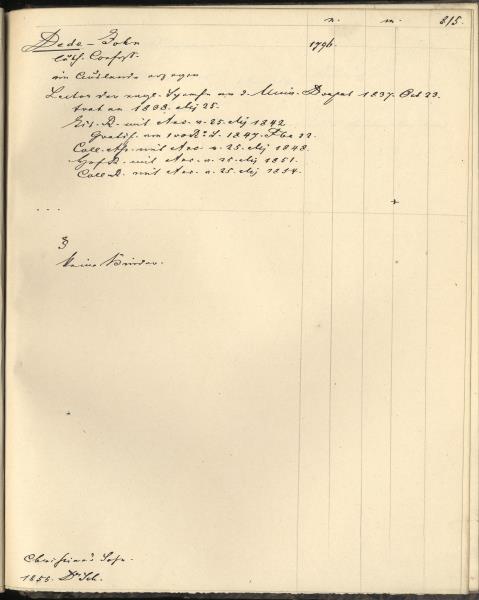 n. m. 215.
Dede - John 1796.
luth. Confess.
im Auslande erzogen
Lector der engl. Sprache an d. Univ. Dorpat 1837. Oct 23.
trat an 1838. Mj 25.
Tit. R. mit Anc. v. 25. Mj 1842
Gratif. von 1847. Fbr 22.
Coll. Ass. mit Anc. v. 25. Mj 1848.
Hof R. mit Anc. v. 25. Mj 1851.
Coll. R. mit Anc. v. 25. Mj 1854.
. . .
keine Kinder.
1858. Dr Sch.